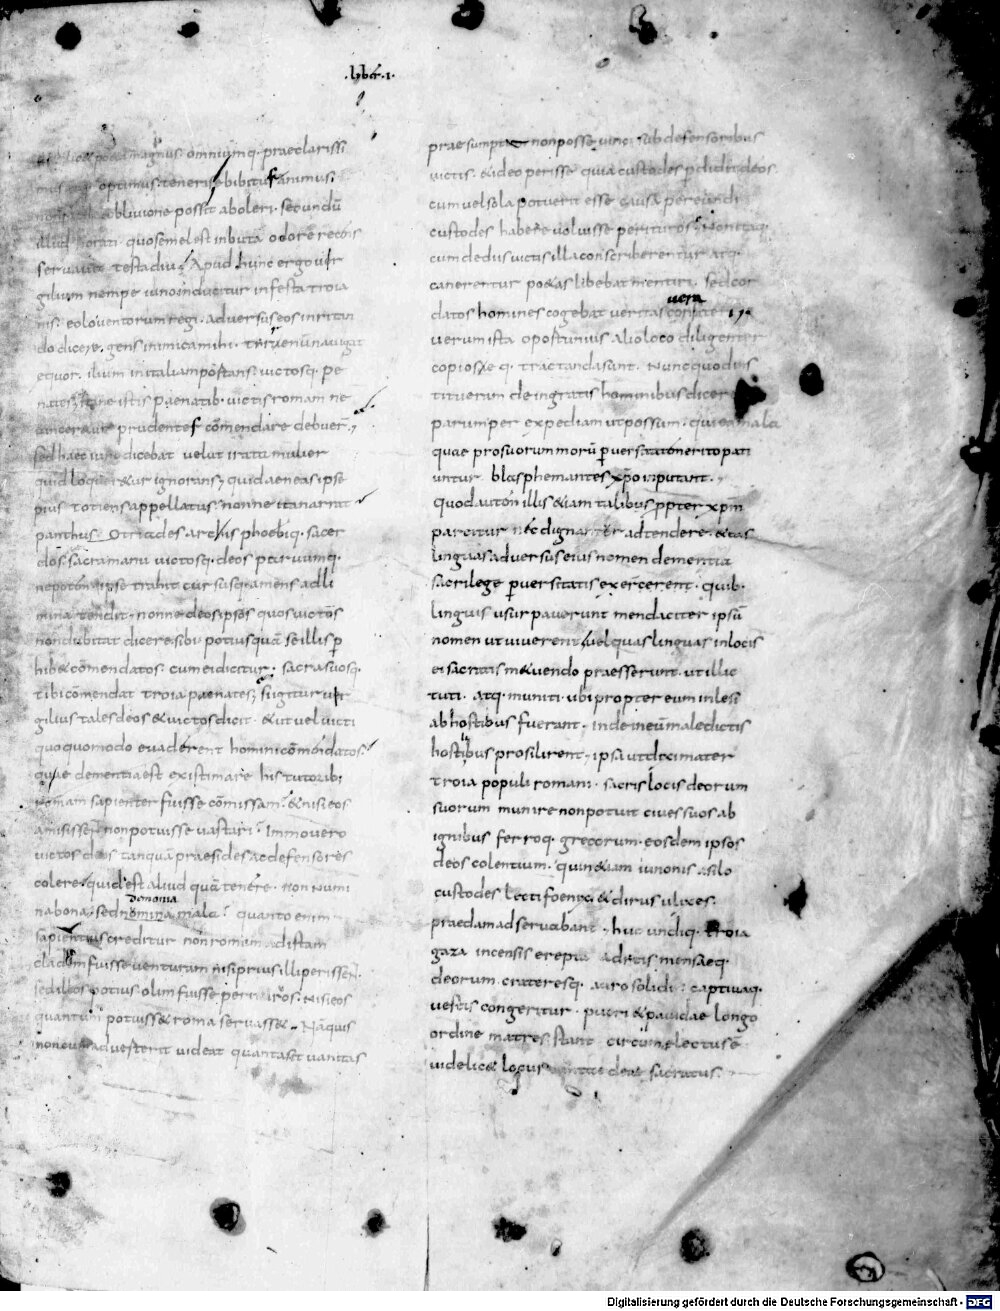 .lyber.i.
magnus. omniumq. praeclarissi
mus optimus. teneris ebibitus animus.
oblivione possit aboleri. secundū
illud horati. quo semel est inbuta odorē recens
servavit testa diu. Apud hunc ergo vir
gilium nempe iuno inducitur infesta troia
nis. eolo ventorum regi. adversus eos inritan
do dicere. gens inimica mihi. tirrenū navigat
equor. ilium in italiam portans. victosq. pe
nates. itane istis paenatib. victis romam ne
vinceretur prudentes cōmendare debuer̄.
sed haec iuno dicebat velut irata mulier
quid loqueretur ignorans; quid aeneas ipse
pius totiens appellatus. nonne ita narrat
panthus. Otriades arcis phoebiq. sacer
dos. sacra manu victosq. deos parvumq.
nepotem ipse trahit cursuq. amens ad li
mina tendit. nonne deos ipsos quos victos
non dubitat dicere. sibi potius quā se illis p
hib& cōmendatos. cum ei dicitur. sacra suosq.
tibi cōmendat troia paenates; si igitur vir
gilius tales deos & victos dicit. & ut vel victi
quoquomodo evaderent homini cōmendatos.
quae dementia est existimare his tutorib;
romam sapienter fuisse cōmissam. & nisi eos
amisisset. non potuisse vastari. Immo vero
victos deos tanquā praesides ac defensores
colere. quid est aliud quā tenere. non numi
demonia
na bona. sed nomina mala. quanto enim
sapientius creditur non romam ad istam
cladem fuisse venturam nisi prius illi perissent.
sed illos potius olim fuisse perituros. nisi eos
quantum potuiss& roma servass&. Nā quis
non cum adverterit videat quanta sit vanitas
praesumptum non posse vinci sub defensoribus
victis. & ideo perisse quia custodes perdidit deos.
cum vel sola potuerit esse causa pereundi
custodes habere voluisse perituros. Non itaq.
cum de dis victis illa conscriberentur atq.
canerentur po&as libebat mentiri. sed cor
vera
datos homines cogebat veritas confiteri
verum ista oportunius alio loco diligenter
copioseq. tractanda sunt. Nunc quod ins
titueram de ingratis hominibus dicere
parumper expediam ut possum. qui ea mala
quae pro suorum morū perversitate merito pati
untur blasphemantes xp̄o inputant.
Quod autem illis &iam talibus ppter xp̄m
parcitur nec dignantur adtendere. & eas
linguas adversus eius nomen dementia
sacrilege perversitatis exercerent. quib.
linguis usurpaverunt mendaciter ipsū
nomen ut viverent. vel quas linguas in locis
ei sacratis m&uendo praesserunt. ut illic
tuti. atq. muniti. ubi propter eum inlesi
ab hostibus fuerant. inde in eum maledictis
hostibus prosilirent. ipsa ut dixi mater
troia populi romani. sacris locis deorum
suorum munire non potuit cives suos ab
ignibus ferroq. grecorum. eosdem ipsos
deos colentium. quin &iam iunonis asilo
custodes lecti foenix. & dirus ulixes.
praedam adservabant. huc undiq. troia
gaza incensis erepta aditis mensaeq.
deorum. crateresq. auro solidi. captivaq.
vestis congeritur. pueri & pavidae longo
ordine matres. stant circum. electus ē
videlic& locus tantae deae sacratus.
Digitalisierung gefördert durch die Deutsche Forschungsgemeinschaft - DFG